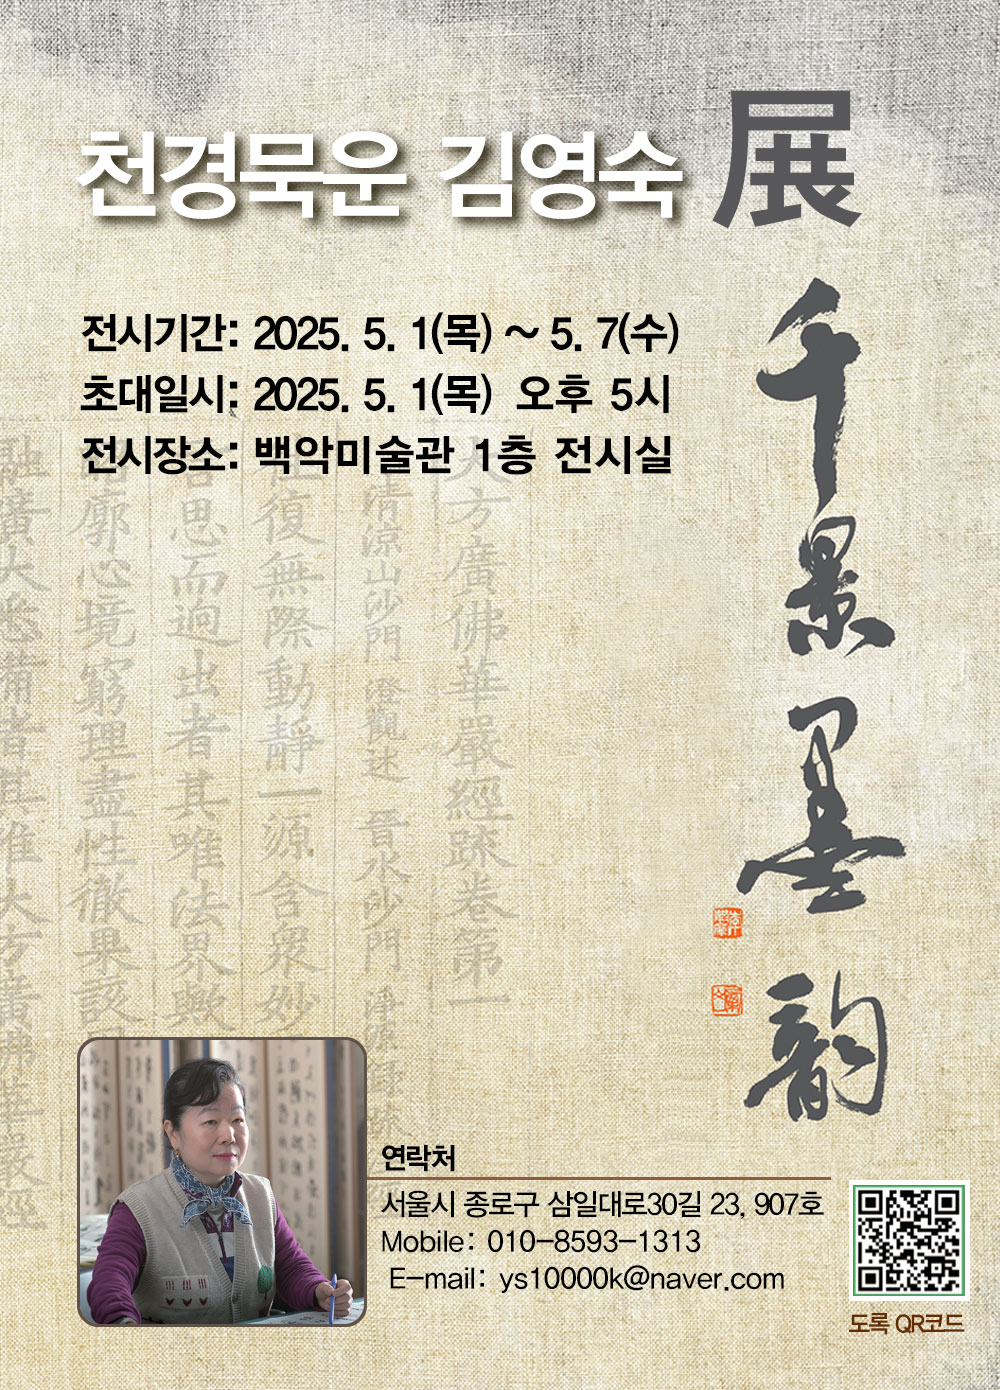 천경묵운 김영숙 展
전시기간: 2025. 5. 1(목) ~ 5. 7(수)
초대일시: 2025. 5. 1(목) 오후 5시
전시장소: 백악미술관 1층 전시실
千景墨韵
大方廣佛華嚴經疏卷第一
清涼山沙門 澄觀述 晉水沙門
往復無際動靜一源含衆妙
言思而逈出者其唯法界歟
廓心境窮理盡性徹果該
融廣大悉備者其唯大方廣佛華嚴經
연락처
서울시 종로구 삼일대로30길 23, 907호
Mobile: 010-8593-1313
E-mail: ys10000k@naver.com
도록 QR코드